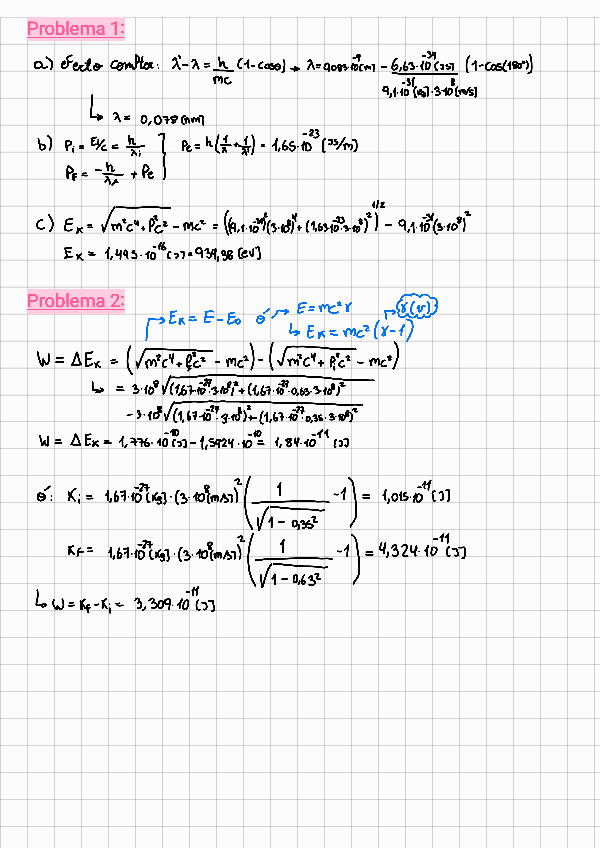 Problema 1:
a) efecto compton: λ'-λ = h/mc (1-cosθ) → λ = 0,083·10⁻⁹[m] - 6,63·10⁻³⁴[Js] / 9,1·10⁻³¹[kg]·3·10⁸[m/s] (1-cos(180°))
↳ λ = 0,078 [nm]
b) Pi = E/c = h/λi } Pe = h(1/λ + 1/λ') = 1,65·10⁻²³ [Js/m]
PF = -h/λF + Pe
c) EK = √(m²c⁴ + Pe²c²) - mc² = ((9,1·10⁻³¹)²(3·10⁸)⁴ + (1,63·10⁻²³·3·10⁸)²)^1/2 - 9,1·10⁻³¹(3·10⁸)²
EK = 1,495·10⁻¹⁶ [J] = 934,38 [eV]
Problema 2:
→ EK = E - E₀ ó → E = mc²γ
↳ EK = mc²(γ-1) → γ(v)
W = ΔEK = (√(m²c⁴ + PF²c²) - mc²) - (√(m²c⁴ + Pi²c²) - mc²)
↳ = 3·10⁸ √((1,67·10⁻²⁷·3·10⁸)² + (1,67·10⁻²⁷·0,63·3·10⁸)²
-3·10⁸ √((1,67·10⁻²⁷·3·10⁸)² + (1,67·10⁻²⁷·0,35·3·10⁸)²
W = ΔEK = 1,776·10⁻¹⁰[J] - 1,5924·10⁻¹⁰ = 1,84·10⁻¹¹ [J]
ó: Ki = 1,67·10⁻²⁷[kg]·(3·10⁸[m/s])² (1/√(1-0,35²) - 1) = 1,015·10⁻¹¹[J]
KF = 1,67·10⁻²⁷[kg]·(3·10⁸[m/s])² (1/√(1-0,63²) - 1) = 4,324·10⁻¹¹[J]
↳ W = KF - Ki = 3,309·10⁻¹¹[J]